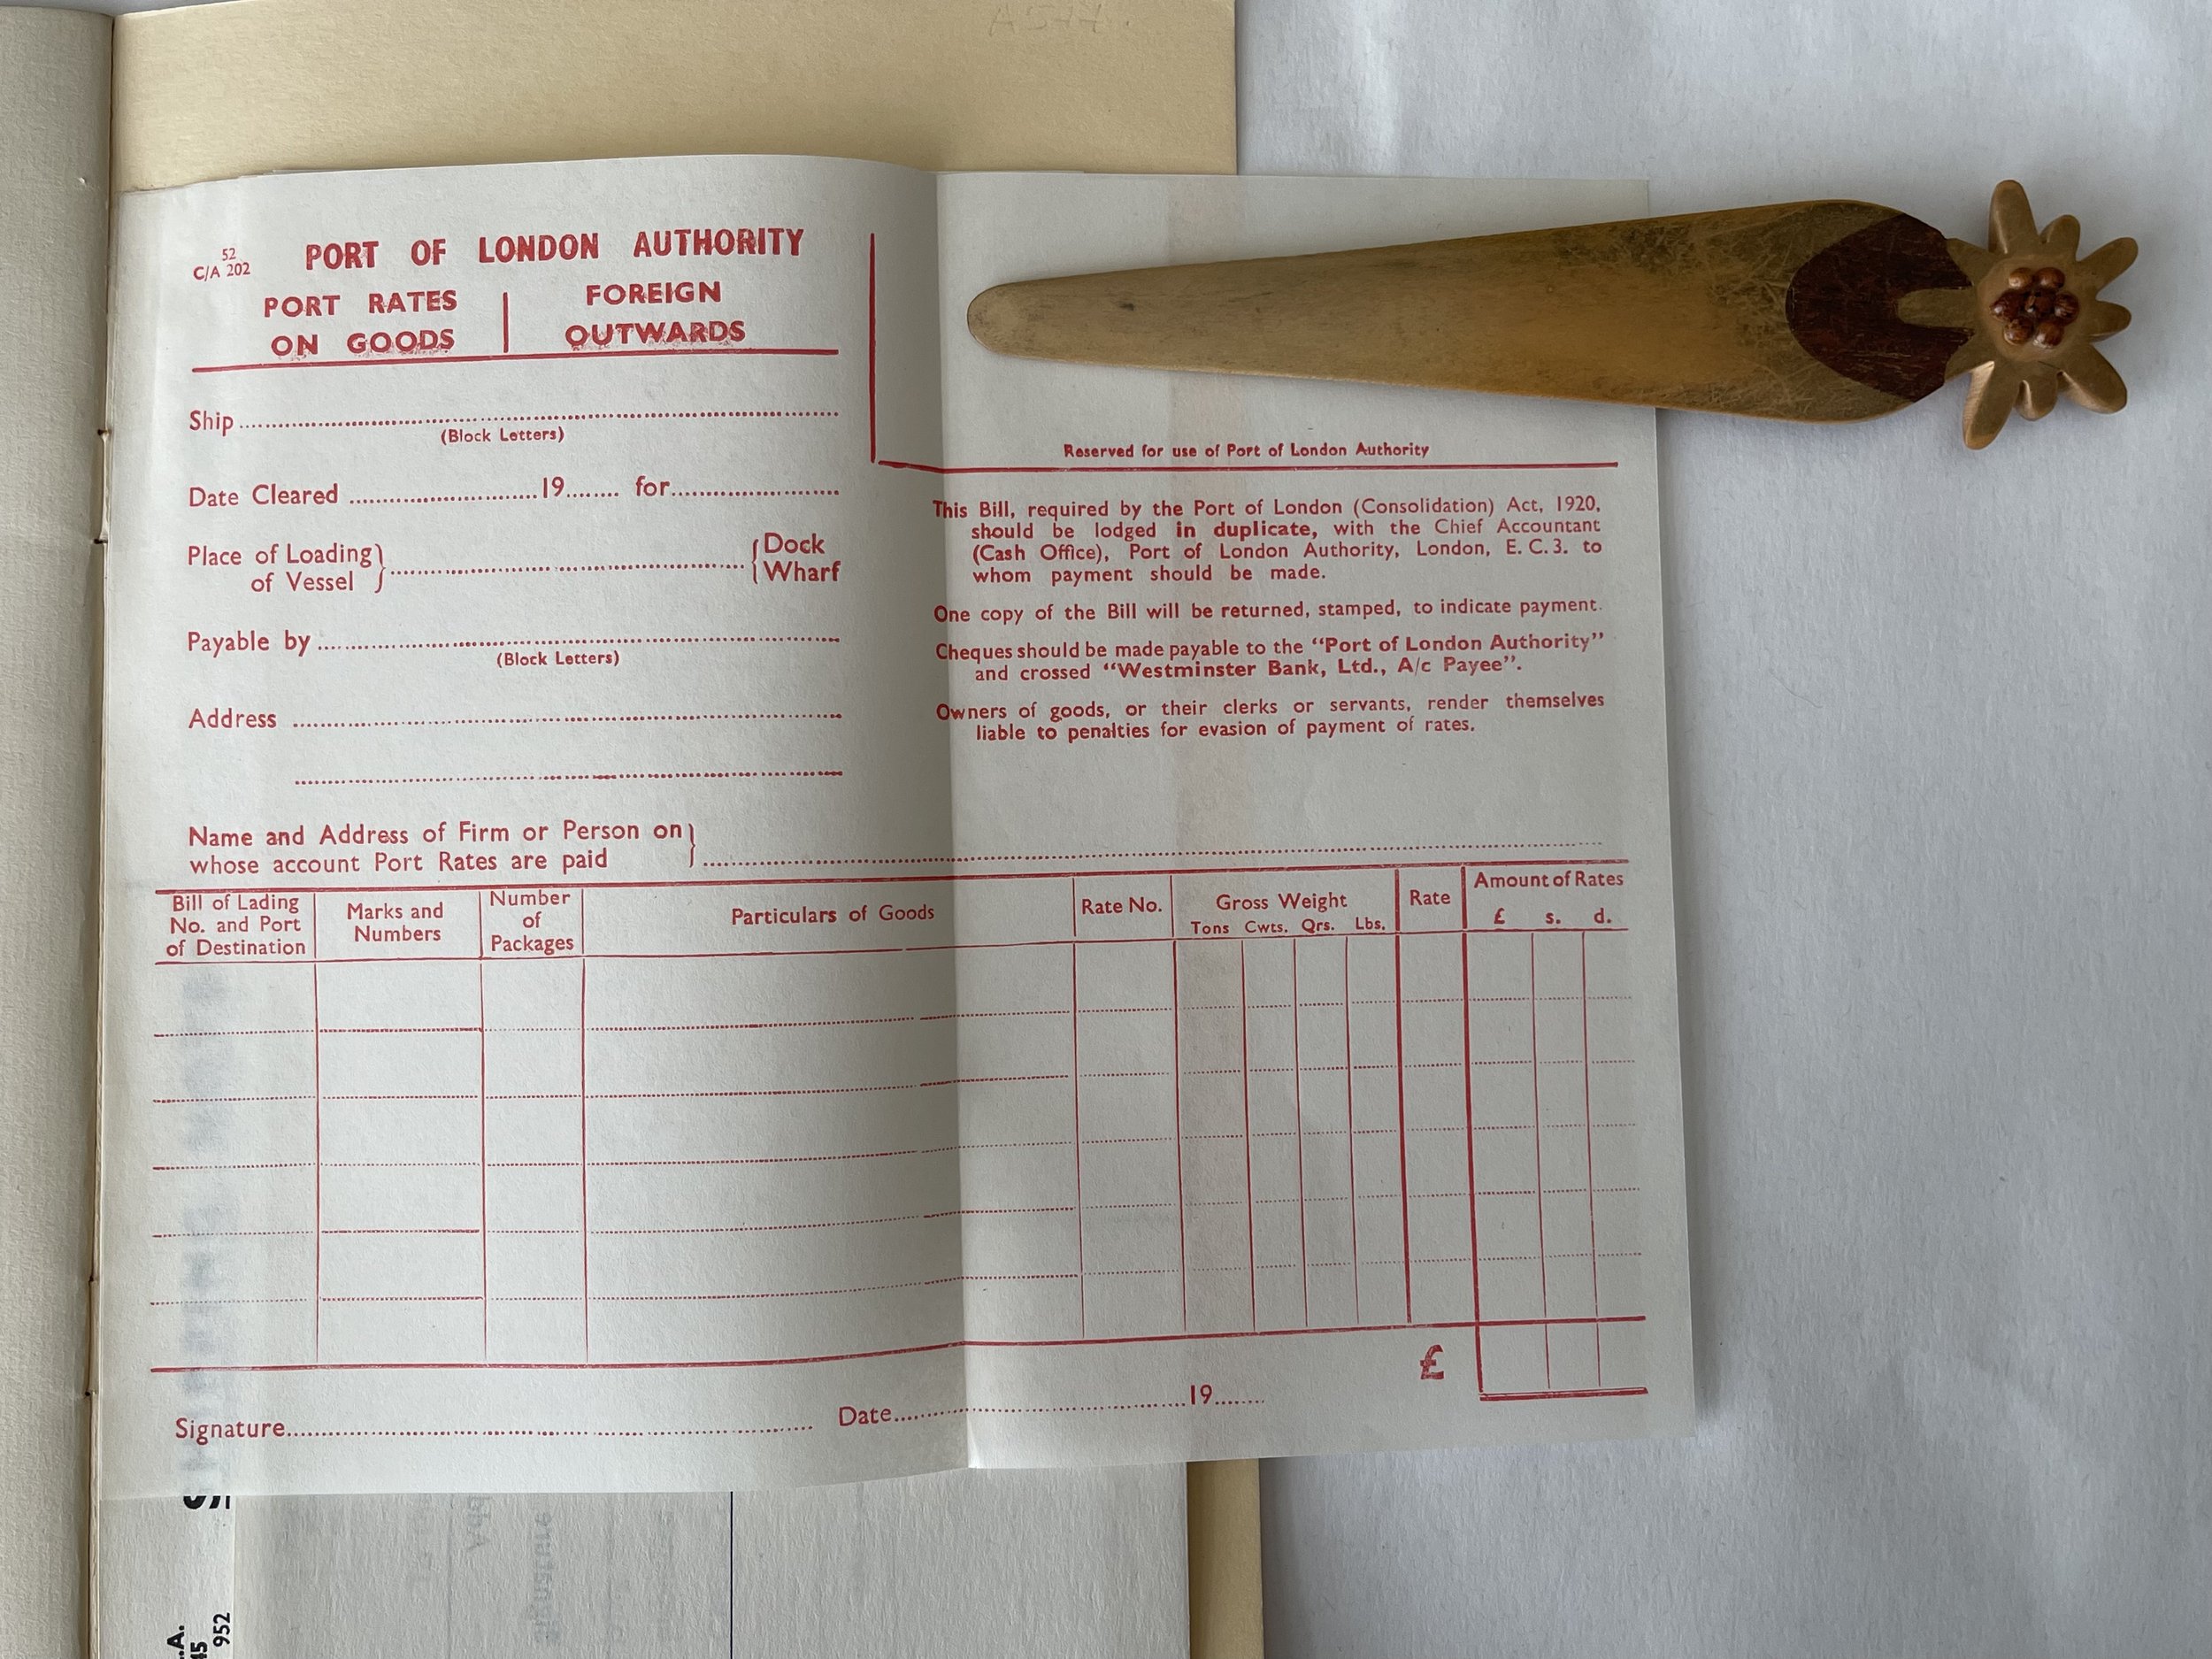 52
C/A 202
PORT OF LONDON AUTHORITY
PORT RATES
ON GOODS
FOREIGN
OUTWARDS
Ship
(Block Letters)
Date Cleared 19 for
Place of Loading
of Vessel
Dock
Wharf
Payable by
(Block Letters)
Address
Reserved for use of Port of London Authority
This Bill, required by the Port of London (Consolidation) Act, 1920,
should be lodged in duplicate, with the Chief Accountant
(Cash Office), Port of London Authority, London, E. C. 3. to
whom payment should be made.
One copy of the Bill will be returned, stamped, to indicate payment.
Cheques should be made payable to the “Port of London Authority”
and crossed “Westminster Bank, Ltd., A/c Payee”.
Owners of goods, or their clerks or servants, render themselves
liable to penalties for evasion of payment of rates.
Name and Address of Firm or Person on
whose account Port Rates are paid
Bill of Lading
No. and Port
of Destination
Marks and
Numbers
Number
of
Packages
Particulars of Goods
Rate No.
Gross Weight
Tons Cwts. Qrs. Lbs.
Rate
Amount of Rates
£ s. d.
£
Signature
Date 19
952